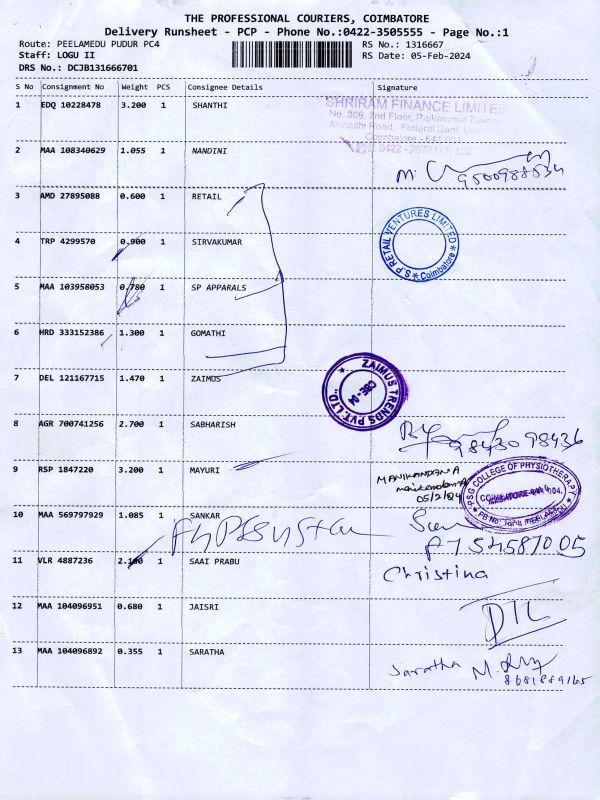 THE PROFESSIONAL COURIERS, COIMBATORE
Delivery Runsheet - PCP - Phone No.:0422-3505555 - Page No.:1
Route: PEELAMEDU PUDUR PC4
RS No.: 1316667
Staff: LOGU II
RS Date: 05-Feb-2024
DRS No.: DCJB131666701
S No Consignment No Weight PCS Consignee Details Signature
1 EDQ 10228478 3.200 1 SHANTHI
SHRIRAM FINANCE LIMITED
No. 309, 2nd Floor, Rajkammal Towers
Avinashi Road, Federal Bank
Coimbatore - 641
2 MAA 108340629 1.055 1 NANDINI
3 AMD 27895088 0.600 1 RETAIL
4 TRP 4299570 0.900 1 SIRVAKUMAR
S.P RETAIL VENTURES LIMITED
Coimbatore
5 MAA 103958053 0.780 1 SP APPARALS
6 HRD 333152386 1.300 1 GOMATHI
7 DEL 121167715 1.470 1 ZAIMUS
ZAIMUS TRENDS PVT. LTD
CBE-04
8 AGR 700741256 2.700 1 SABHARISH
98430 98436
9 RSP 1847220 3.200 1 MAYURI
MANIKANDAN A
05/2/24
PSG COLLEGE OF PHYSIOTHERAPY
COIMBATORE-641 004.
10 MAA 569797929 1.085 1 SANKAR
11 VLR 4887236 2.100 1 SAAI PRABU
Christina
12 MAA 104096951 0.680 1 JAISRI
13 MAA 104096892 0.355 1 SARATHA
Saratha